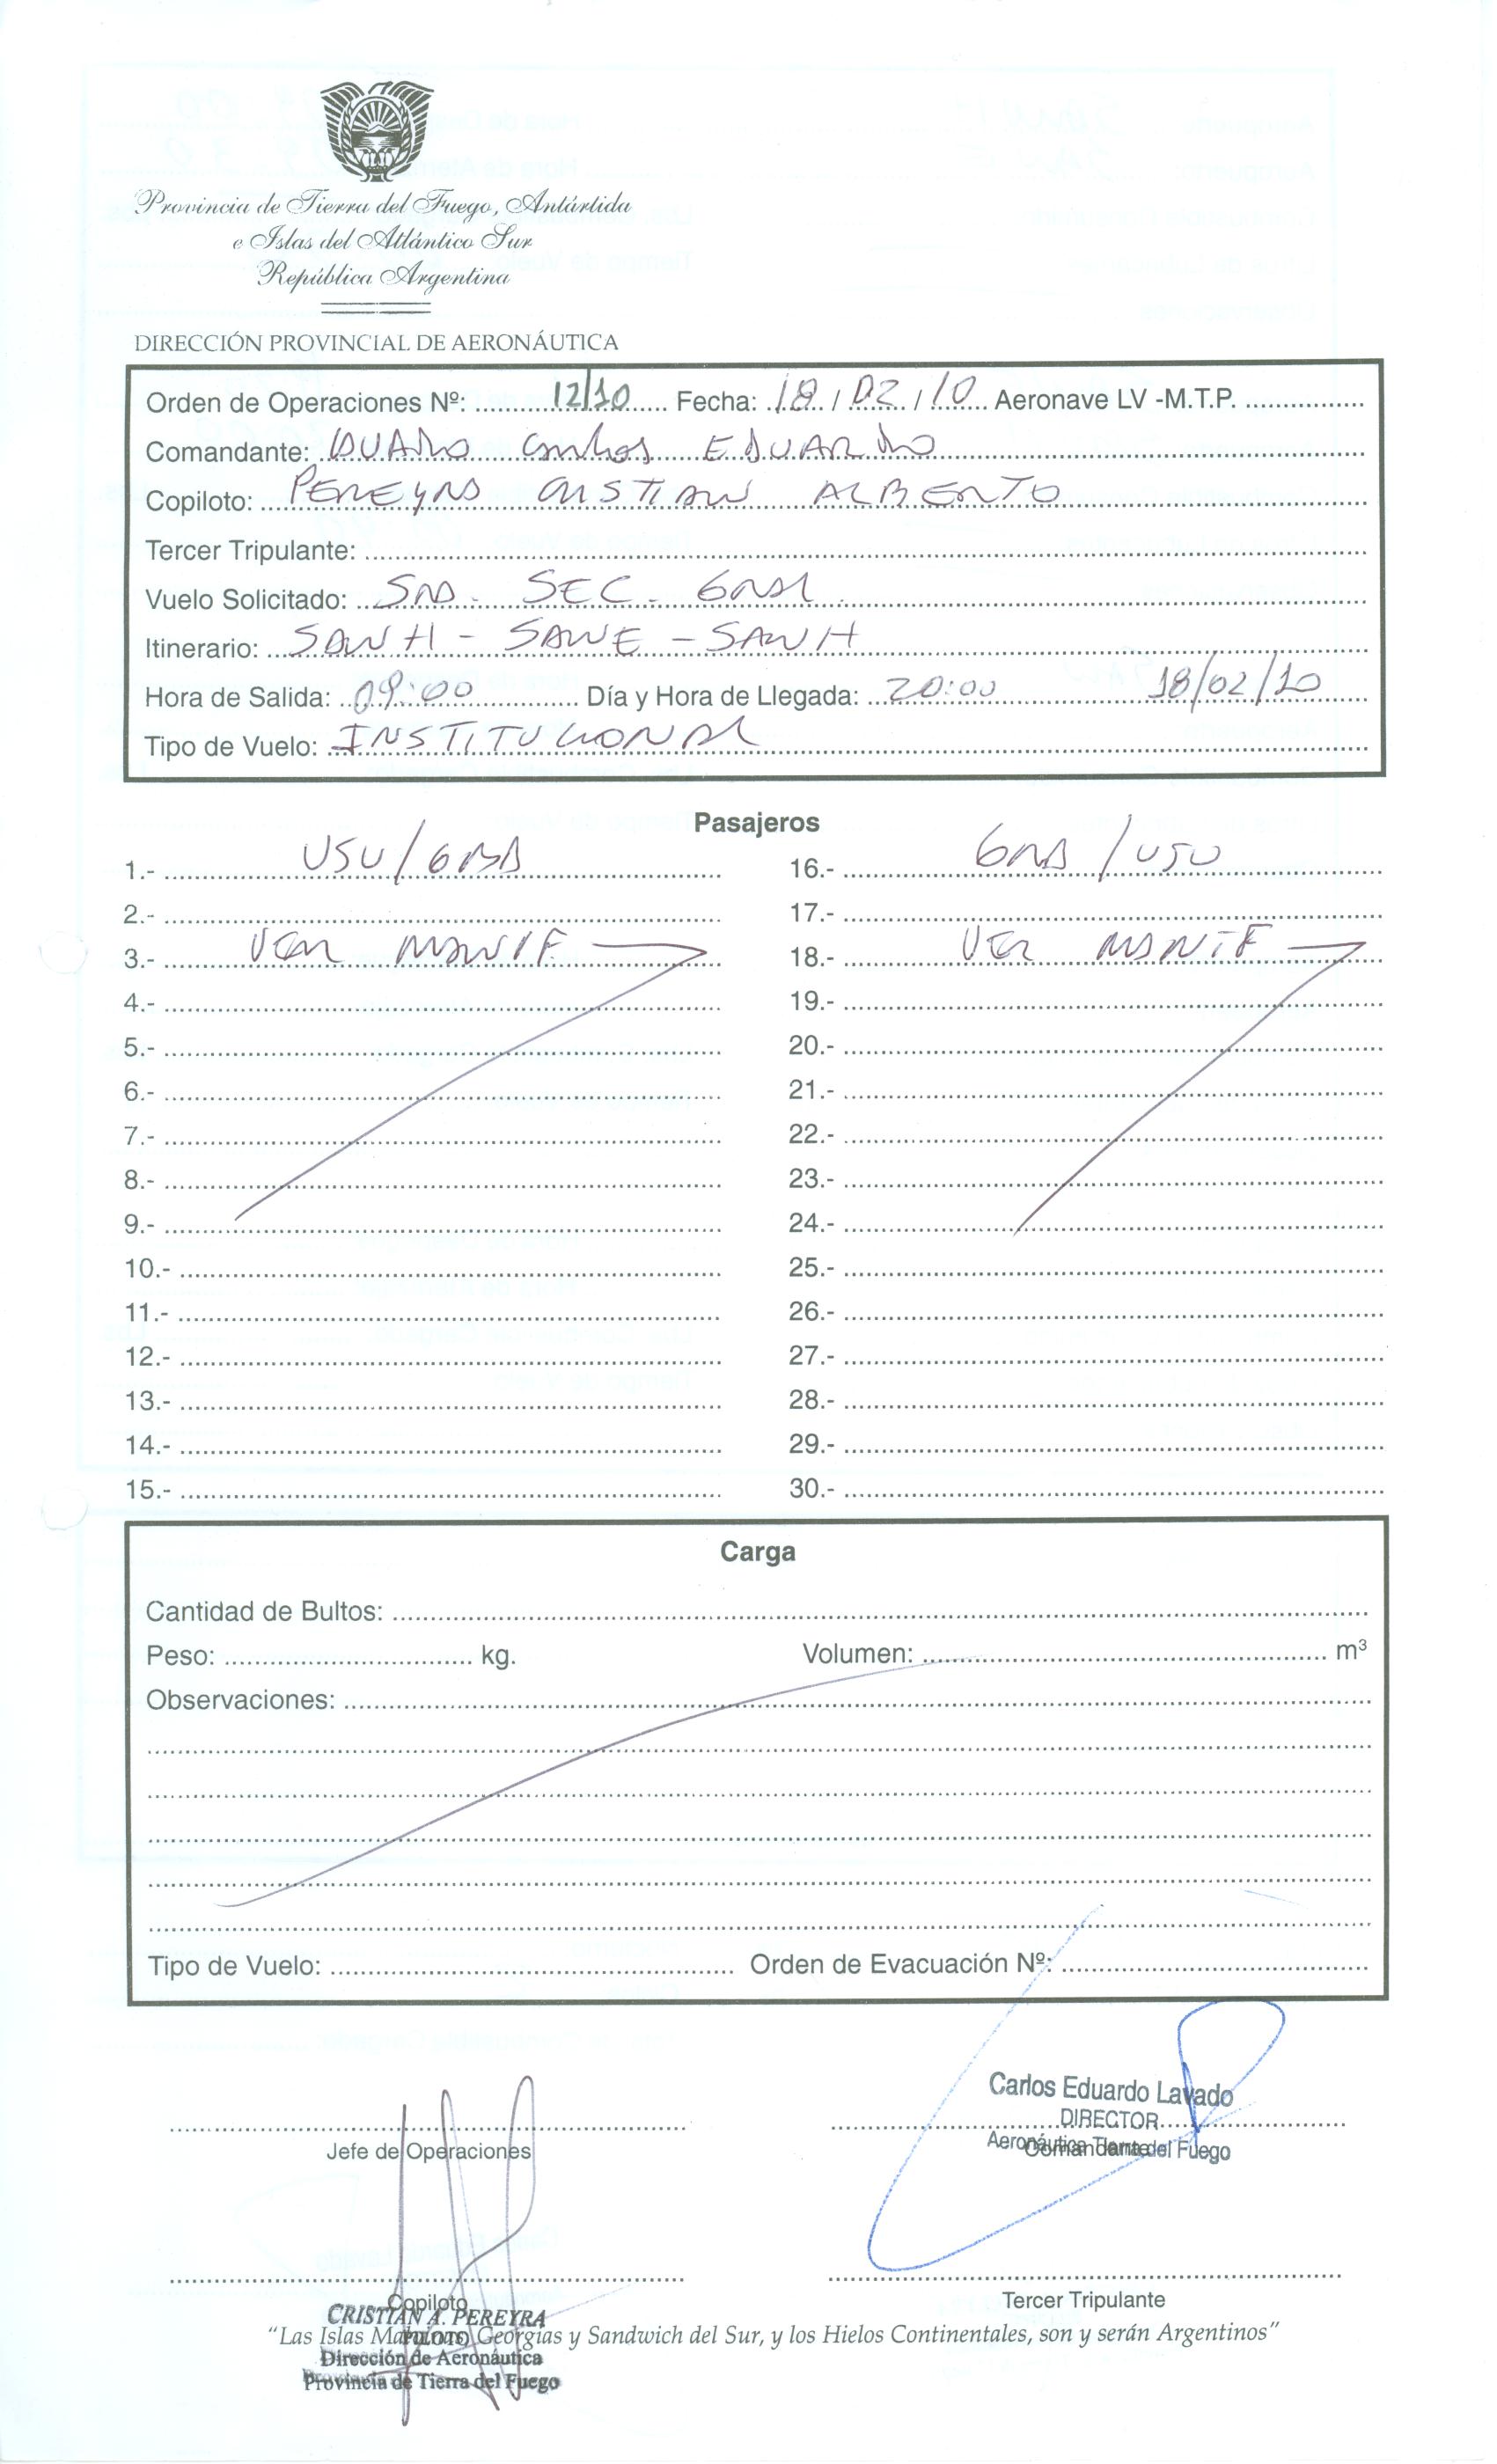 Provincia de Tierra del Fuego, Antártida
e Islas del Atlántico Sur
República Argentina
DIRECCIÓN PROVINCIAL DE AERONÁUTICA
Orden de Operaciones Nº: 12/10 Fecha: 18 / 02 / 10 Aeronave LV -M.T.P.
Comandante: Carlos EDUARDO
Copiloto: PEREYRA CRISTIAN ALBERTO
Tercer Tripulante:
Vuelo Solicitado: SEC. GRAL
Itinerario: SAWH - SAWE - SAWH
Hora de Salida: 09:00 Día y Hora de Llegada: 20:00 18/02/10
Tipo de Vuelo: INSTITUCIONAL
Pasajeros
1.- USU/GRA 16.- GRA/USU
2.- 17.-
3.- VER MANIF 18.- VER MANIF
4.- 19.-
5.- 20.-
6.- 21.-
7.- 22.-
8.- 23.-
9.- 24.-
10.- 25.-
11.- 26.-
12.- 27.-
13.- 28.-
14.- 29.-
15.- 30.-
Carga
Cantidad de Bultos:
Peso: kg. Volumen: m³
Observaciones:
Tipo de Vuelo: Orden de Evacuación Nº:
Carlos Eduardo Lavado
DIRECTOR
Aeronáutica Tierra del Fuego
Jefe de Operaciones Comandante
Copiloto Tercer Tripulante
CRISTIAN A. PEREYRA
PILOTO
"Las Islas Malvinas, Georgias y Sandwich del Sur, y los Hielos Continentales, son y serán Argentinos"
Dirección de Aeronáutica
Provincia de Tierra del Fuego